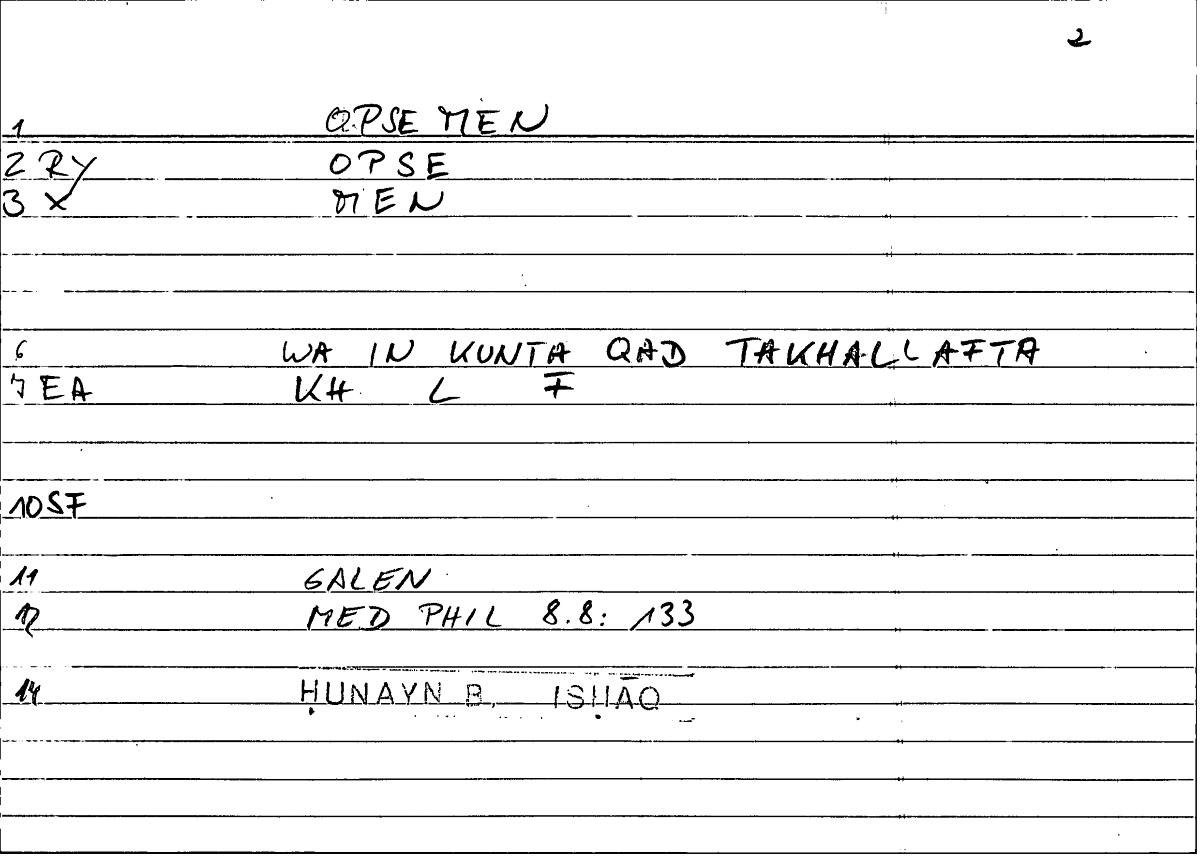 2
1 OPSE MEN
2 RY OPSE
3 X MEN
6 WA IN KUNTA QAD TAKHALLAFTA
7 EA KH L F
10 SF
11 GALEN
12 MED PHIL 8.8: 133
14 ḤUNAYN B. ISḤĀQ